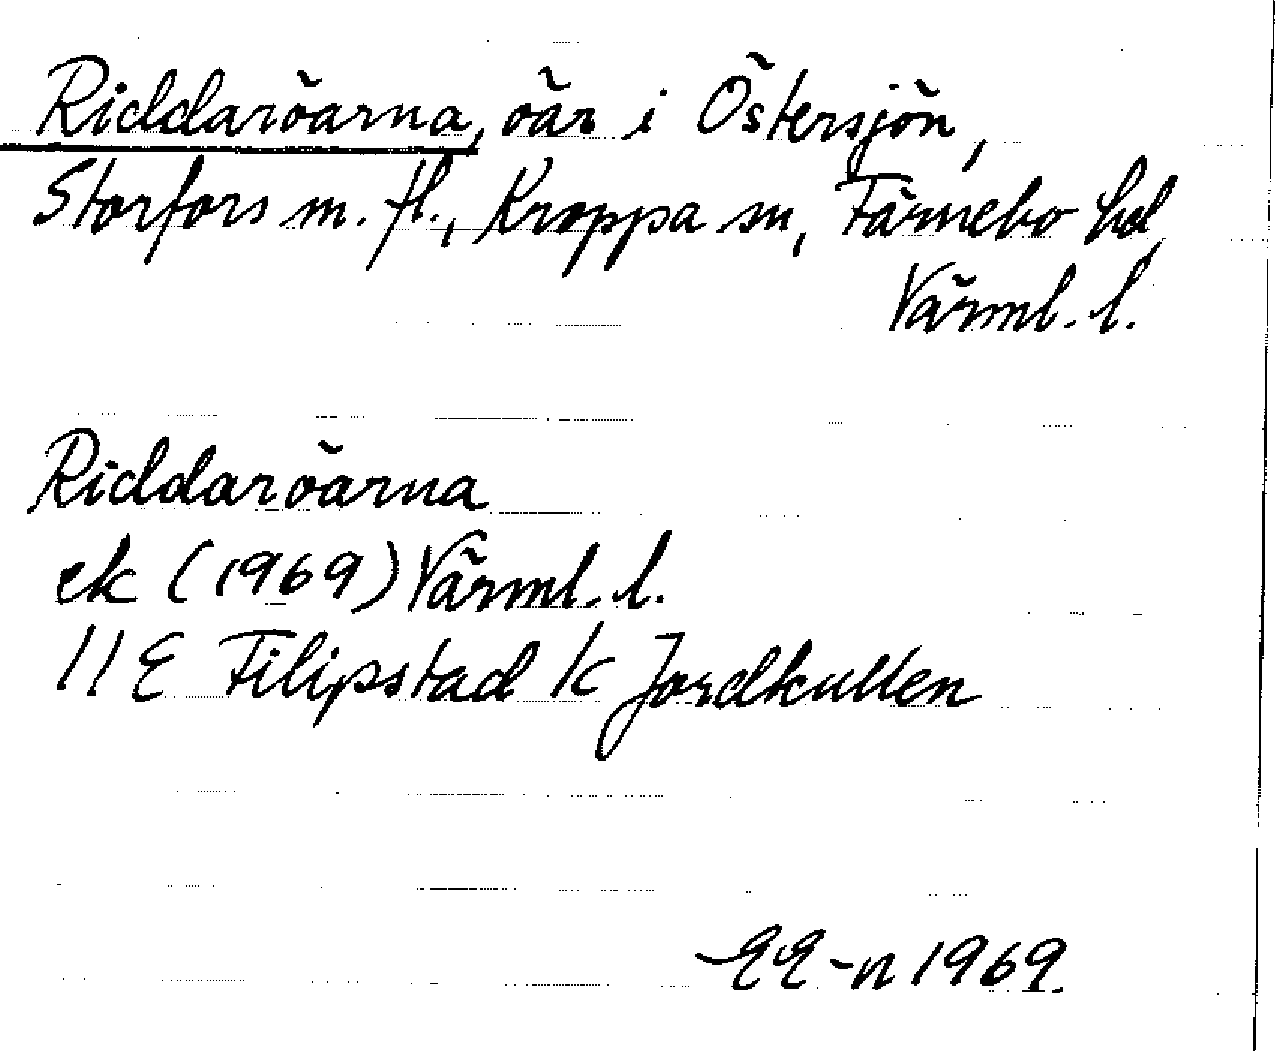 Riddaröarna, öar i Östersjön,
Storfors m. fl., Kroppa sn, Färnebo hd,
Värml. l.
Riddaröarna
ek (1969) Värml. l.
11 E Filipstad k Jordkullen
EE-n 1969.